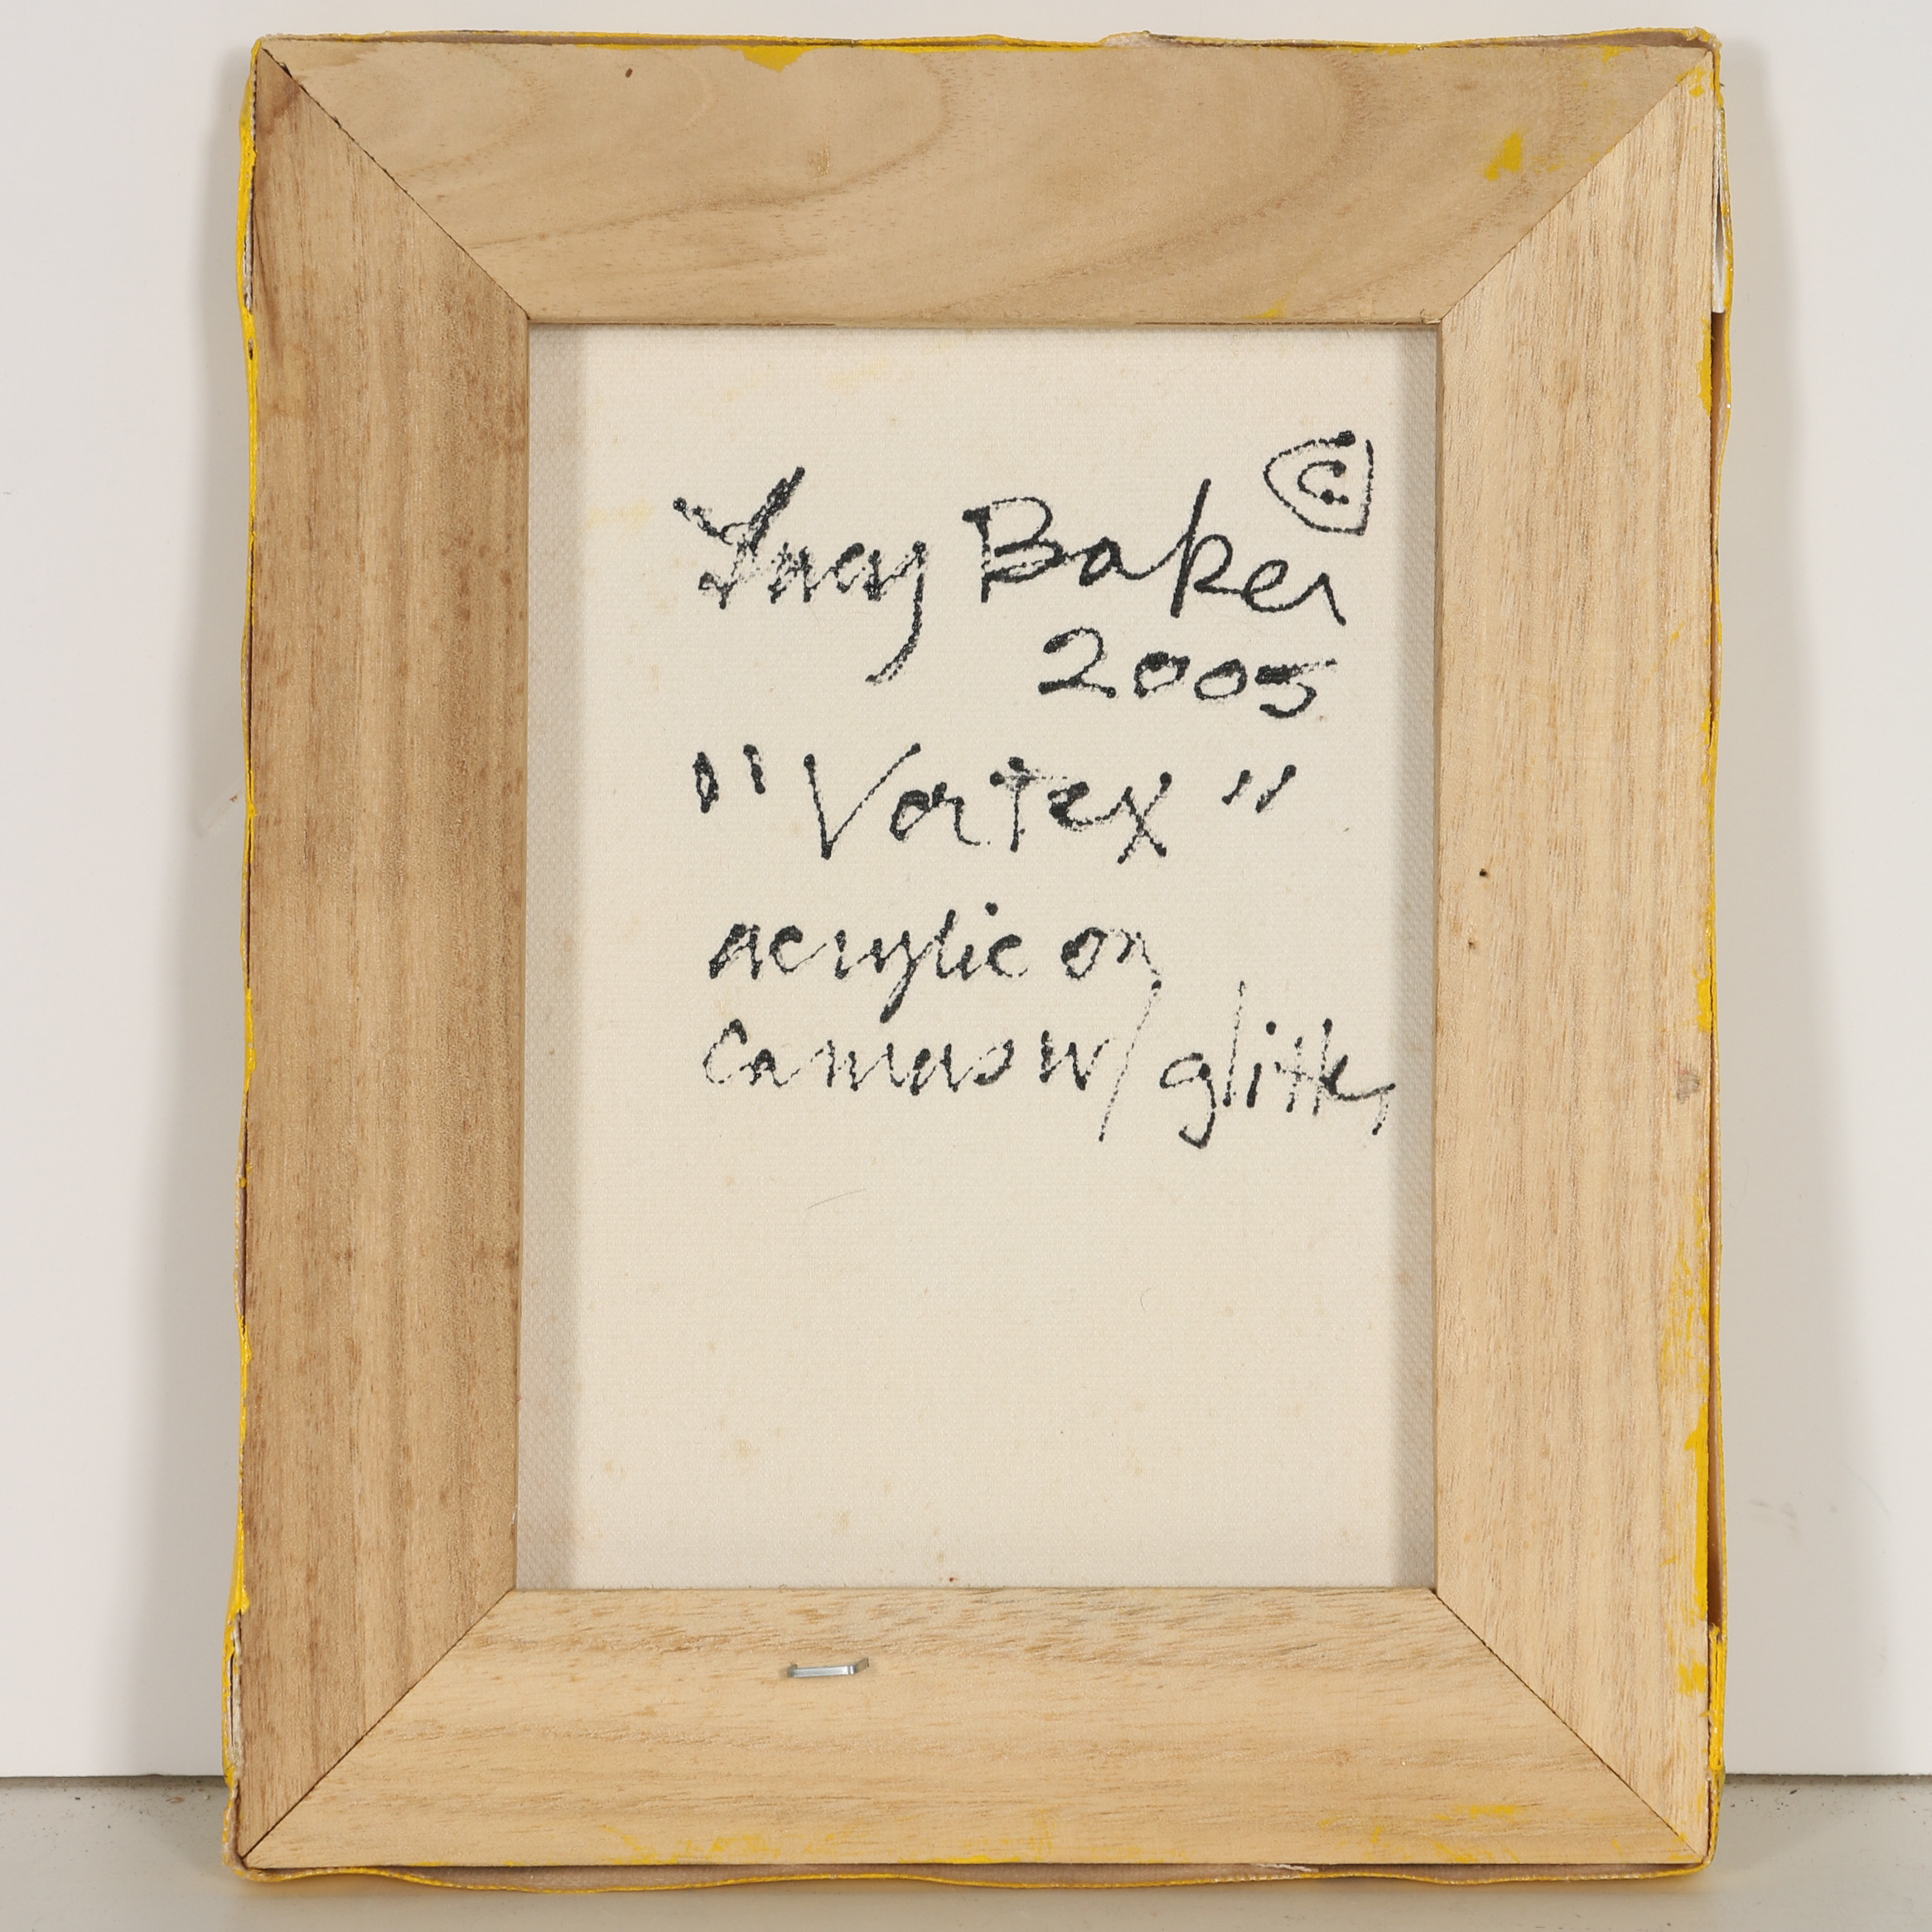 Lucy Baker ©
2005
"Vortex"
acrylic on
canvas w/ glitter